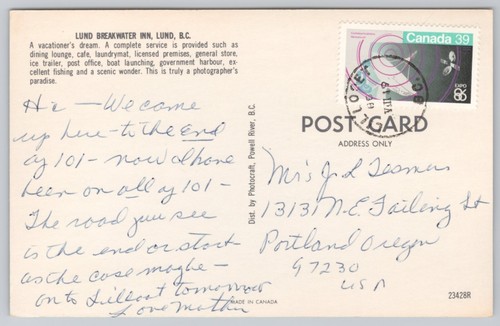 LUND BREAKWATER INN, LUND, B.C.
A vacationer's dream. A complete service is provided such as
dining lounge, cafe, laundrymat, licensed premises, general store,
ice trailer, post office, boat launching, government harbour, ex-
cellent fishing and a scenic wonder. This is truly a photographer's
paradise.
Hi - We came
up here - to the end
of 101 - now I have
been on all of 101 -
The road you see
is the end or start
as the case maybe -
on to Lillooet tomorrow
Love Mother
Dist. by Photocraft, Powell River, B.C.
MADE IN CANADA
Canada 39
EXPO
86
LILLOOET
B.C.
POST CARD
ADDRESS ONLY
Mrs J. L
13131 N.E. Failing St
Portland Oregon
97230
USA
23428R